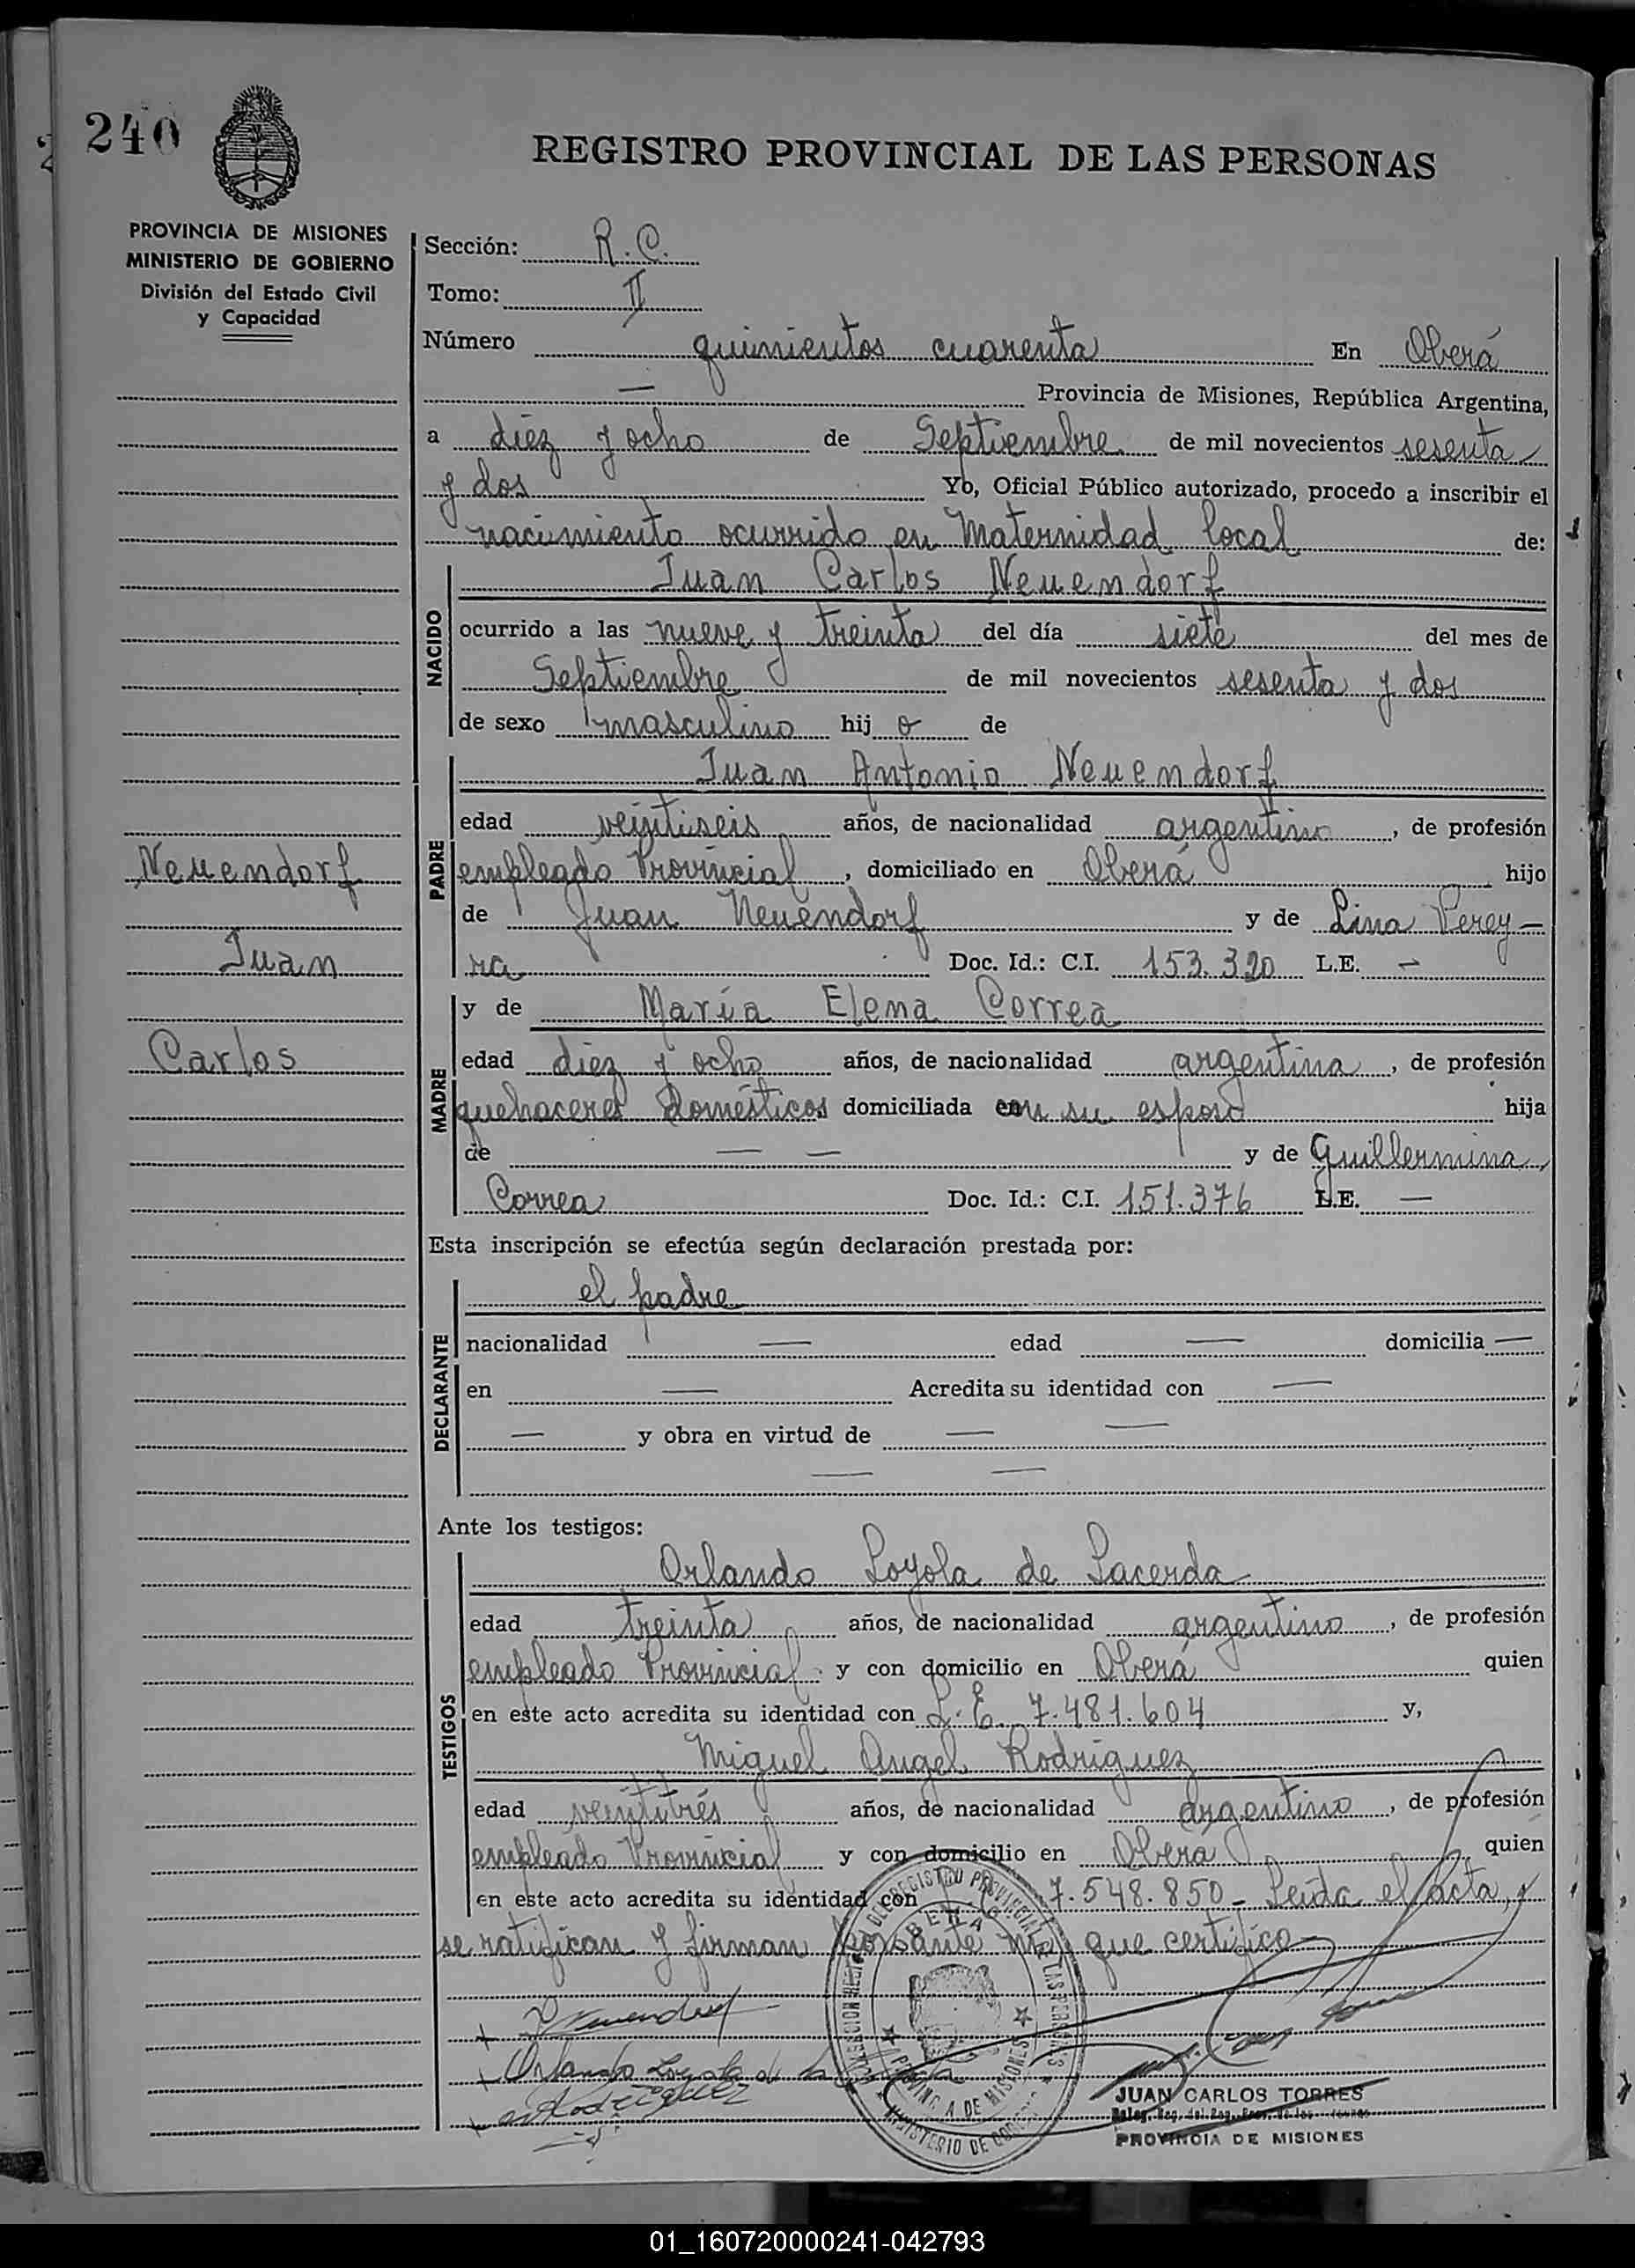 240
REGISTRO PROVINCIAL DE LAS PERSONAS
PROVINCIA DE MISIONES
MINISTERIO DE GOBIERNO
División del Estado Civil
y Capacidad
Sección: R.C.
Tomo: II
Número quinientos cuarenta En Oberá
— Provincia de Misiones, República Argentina,
a diez y ocho de Septiembre de mil novecientos sesenta
y dos Yo, Oficial Público autorizado, procedo a inscribir el
nacimiento ocurrido en Maternidad local de:
NACIDO
Juan Carlos Neuendorf
ocurrido a las nueve y treinta del día siete del mes de
Septiembre de mil novecientos sesenta y dos
de sexo masculino hijo de
PADRE
Juan Antonio Neuendorf
edad veintiseis años, de nacionalidad argentino, de profesión
empleado Provincial, domiciliado en Oberá hijo
de Juan Neuendorf y de Lina Perey-
ra Doc. Id.: C.I. 153.320 L.E. —
Neuendorf
Juan
Carlos
MADRE
y de María Elena Correa
edad diez y ocho años, de nacionalidad argentina, de profesión
quehaceres domésticos domiciliada con su esposo hija
de — — y de Guillermina
Correa Doc. Id.: C.I. 151.376 L.E. —
Esta inscripción se efectúa según declaración prestada por:
DECLARANTE
el padre
nacionalidad — edad — domicilia —
en — Acredita su identidad con —
— y obra en virtud de — —
— —
Ante los testigos:
TESTIGOS
Orlando Loyola de Lacerda
edad treinta años, de nacionalidad argentino, de profesión
empleado Provincial y con domicilio en Oberá quien
en este acto acredita su identidad con L.E. 7.481.604 y,
Miguel Angel Rodriguez
edad veintitrés años, de nacionalidad argentino, de profesión
empleado Provincial y con domicilio en Oberá quien
en este acto acredita su identidad con 7.548.850 - Leída el acta,
se ratifican y firman por ante mí que certifico
Orlando Loyola de
Rodriguez
PROVINCIA DE MISIONES
JUAN CARLOS TORRES
PROVINCIA DE MISIONES
01_160720000241-042793